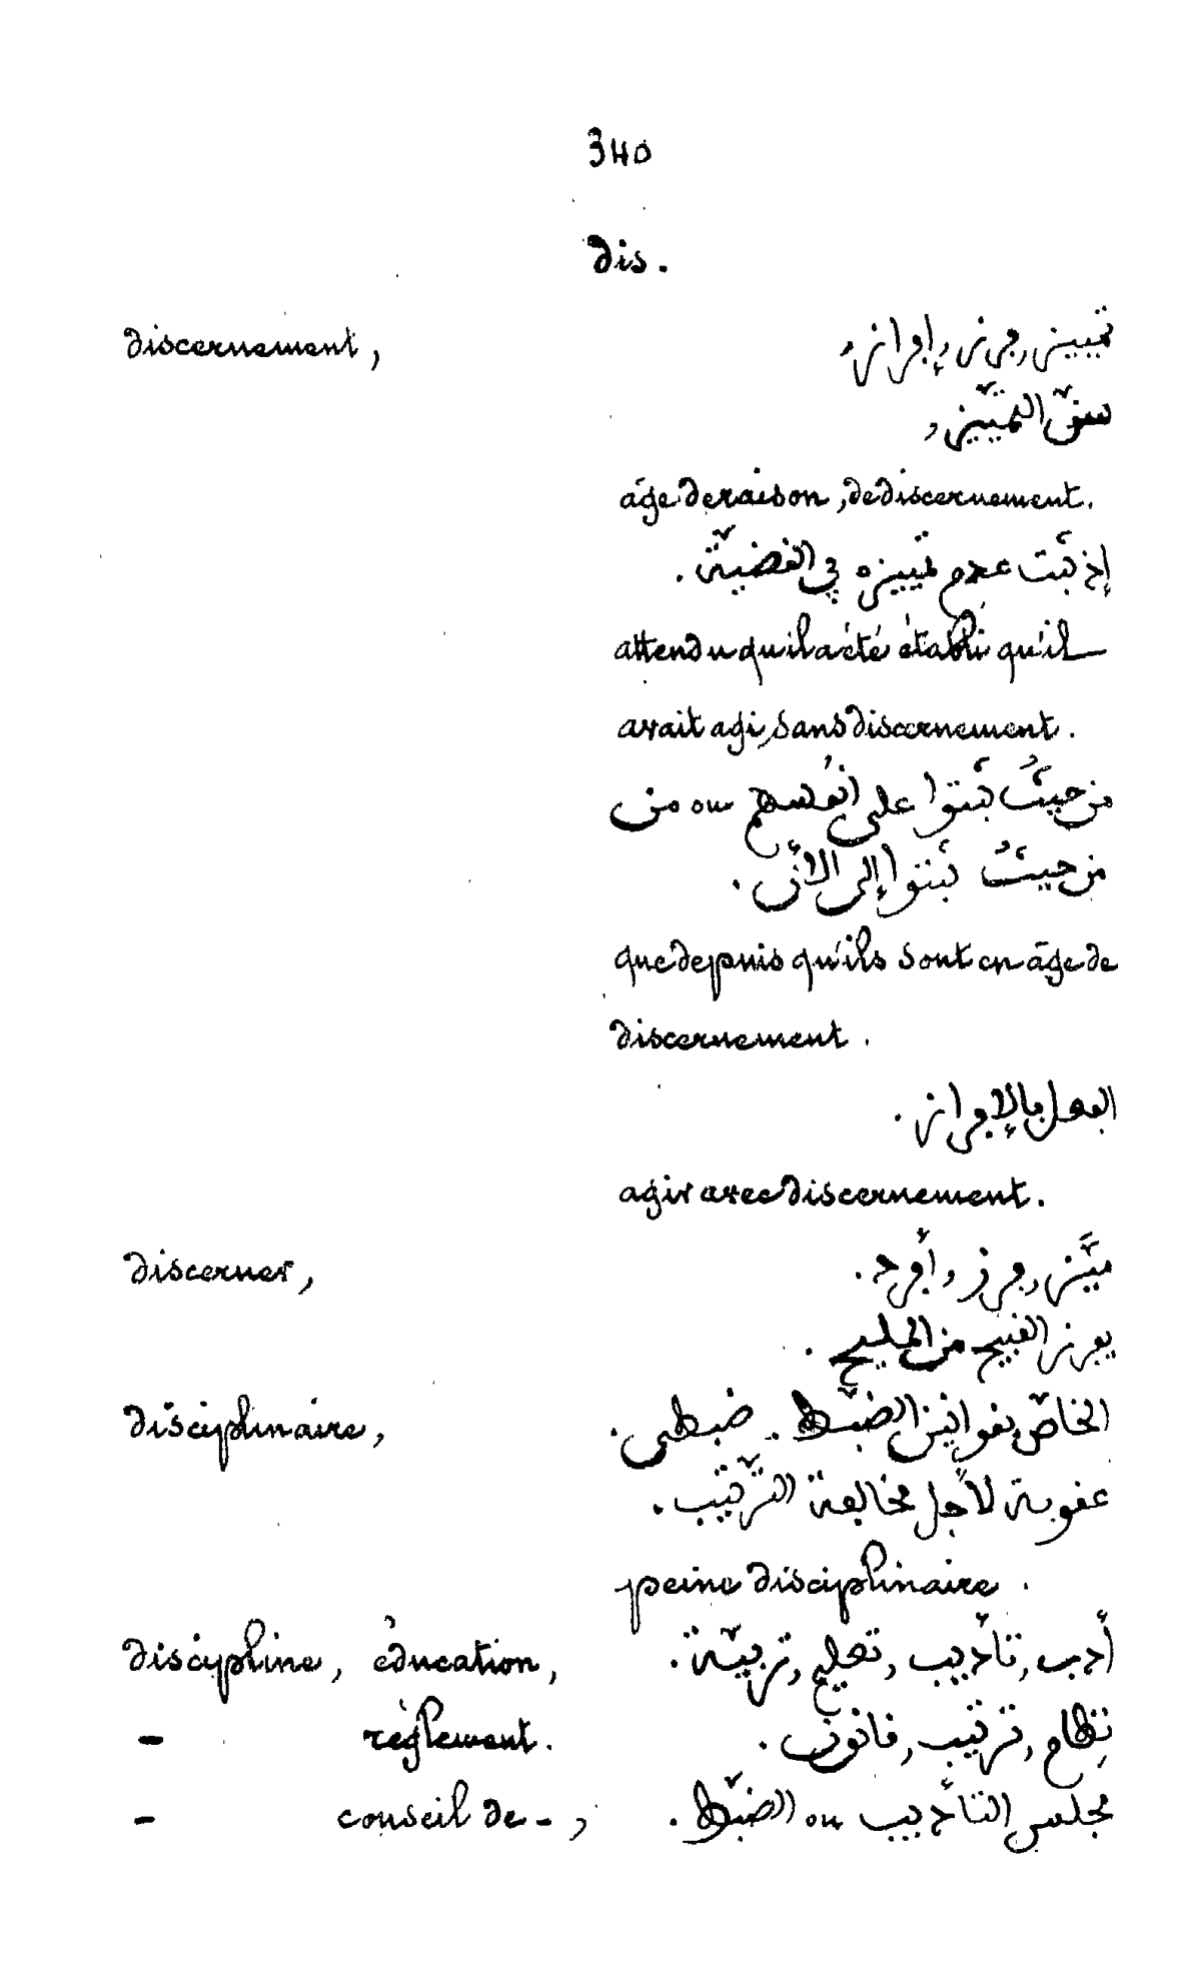 340
dis.
discernement, تمييز, فرز, إفراز,
سنّ التّمييز,
âge de raison, de discernement.
إذ ثبت عدم تمييزه في القضيّة.
attendu qu'il a été établi qu'il
avait agi, sans discernement.
من حيثُ ثبتوا على أنفسهم ou من
من حيثُ ثبتوا إلى الأن.
que depuis qu'ils sont en âge de
discernement.
الفعل بالإفراز.
agir avec discernement.
discerner, ميّز, فرز, وأفرد.
يفرز القبيح من المليح.
disciplinaire, الخاصّ بقوانين الضّبط. ضبطي.
عقوبة لأجل مخالفة التّرتيب.
peine disciplinaire.
discipline, éducation, أدب, تأديب, تعليم, تربيّة.
- règlement. نظام, ترتيب, قانون.
- conseil de -, مجلس التأديب ou الضّبط.